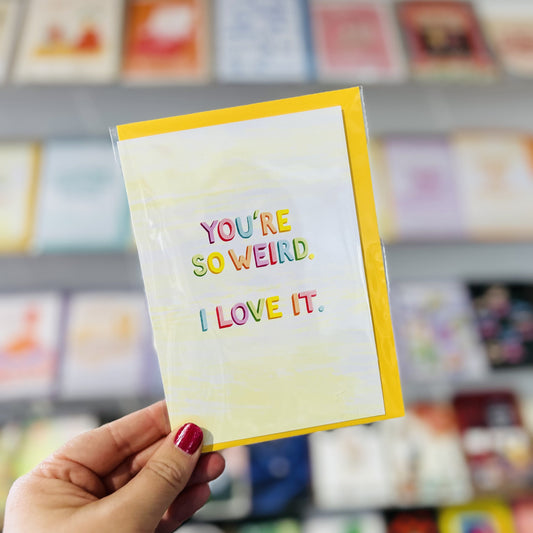 YOU'RE
SO WEIRD.
I LOVE IT.